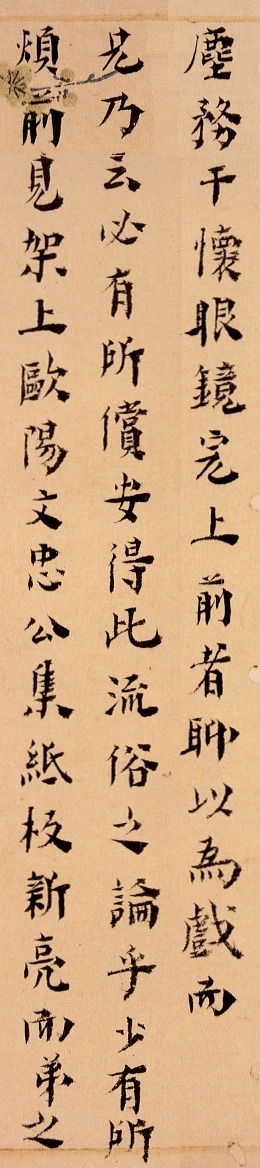 塵務干懷眼鏡完上前者聊以為戲而
兄乃云必有所償安得此流俗之論乎少有所
煩前見架上歐陽文忠公集紙板新亮而弟之